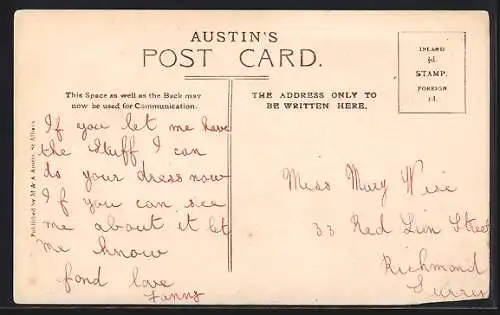 AUSTIN'S
POST CARD.
This Space as well as the Back may
now be used for Communication.
THE ADDRESS ONLY TO
BE WRITTEN HERE.
INLAND
½d.
STAMP.
FOREIGN
1d.
Published by M & A Austin, St. Albans
If you let me have
the stuff I can
do your dress now
If you can see
me about it let
me know
fond love
Fanny
Miss Mary Wise
33 Red Lion Street
Richmond
Surrey